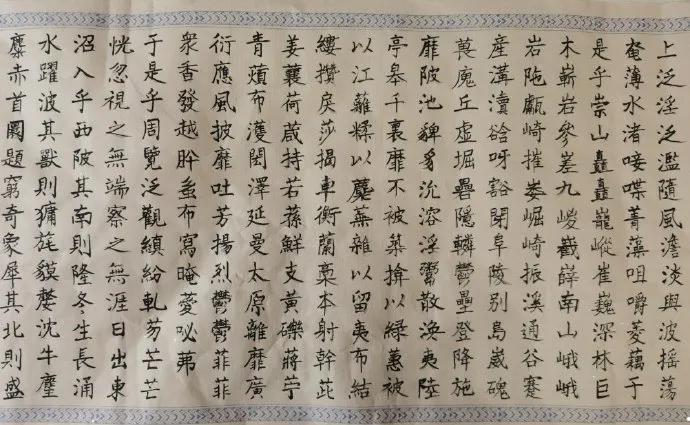 上泛淫泛濫隨風澹淡與波摇蕩
奄薄水渚唼喋菁藻咀嚼菱藕于
是乎崇山矗矗巃嵸崔巍深林巨
木嶄岩參差九嵕嶻嶭南山峨峨
岩陁甗崎摧崣崛崎振溪通谷蹇
產溝瀆谽呀豁閉阜陵别島崴磈
丘虚堀礨隱轔鬱壘登降施
靡陂池貏豸沇溶淫鬻散渙夷陸
亭皋千裏靡不被築揜以緑蕙被
以江蘺糅以蘪蕪雜以留夷布結
縷攢戾莎揭車衡蘭槀本射幹茈
姜蘘荷葴持若蓀鮮支黄礫蔣苧
青薠布濩閎澤延曼太原離靡廣
衍應風披靡吐芳揚烈鬱鬱菲菲
衆香發越肸布寫晻薆咇茀
于是乎周覽泛觀縝紛軋芴芒芒
恍忽視之無端察之無涯日出東
沼入乎西陂其南則隆冬生長涌
水躍波其獸則㺎旄貘嫠沈牛麈
麋赤首圜題窮奇象犀其北則盛